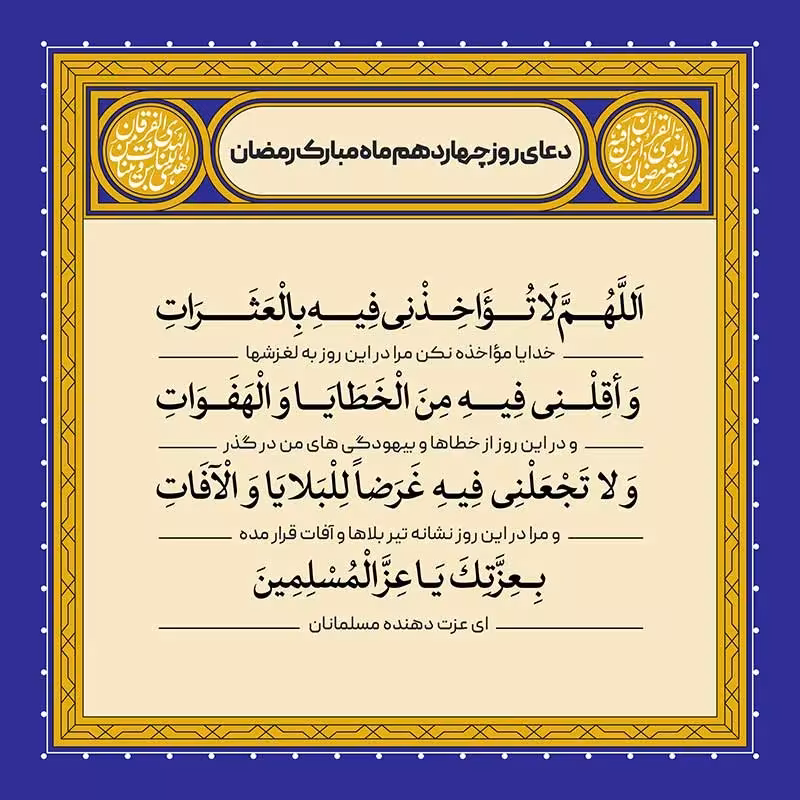 دعای روز چهاردهم ماه مبارک رمضان
شهر رمضان الذی انزل فیه القرآن
هدی للناس و بینات من الهدی و الفرقان
اَللَّهُمَّ لَا تُؤَاخِذْنِی فِیهِ بِالْعَثَرَاتِ
خدایا مؤاخذه نکن مرا در این روز به لغزشها
وَ أَقِلْنِی فِیهِ مِنَ الْخَطَایَا وَ الْهَفَوَاتِ
و در این روز از خطاها و بیهودگی های من در گذر
وَ لا تَجْعَلْنِی فِیهِ غَرَضاً لِلْبَلایَا وَ الْآفَاتِ
و مرا در این روز نشانه تیر بلاها و آفات قرار مده
بِعِزَّتِكَ یَا عِزَّ الْمُسْلِمِینَ
ای عزت دهنده مسلمانان